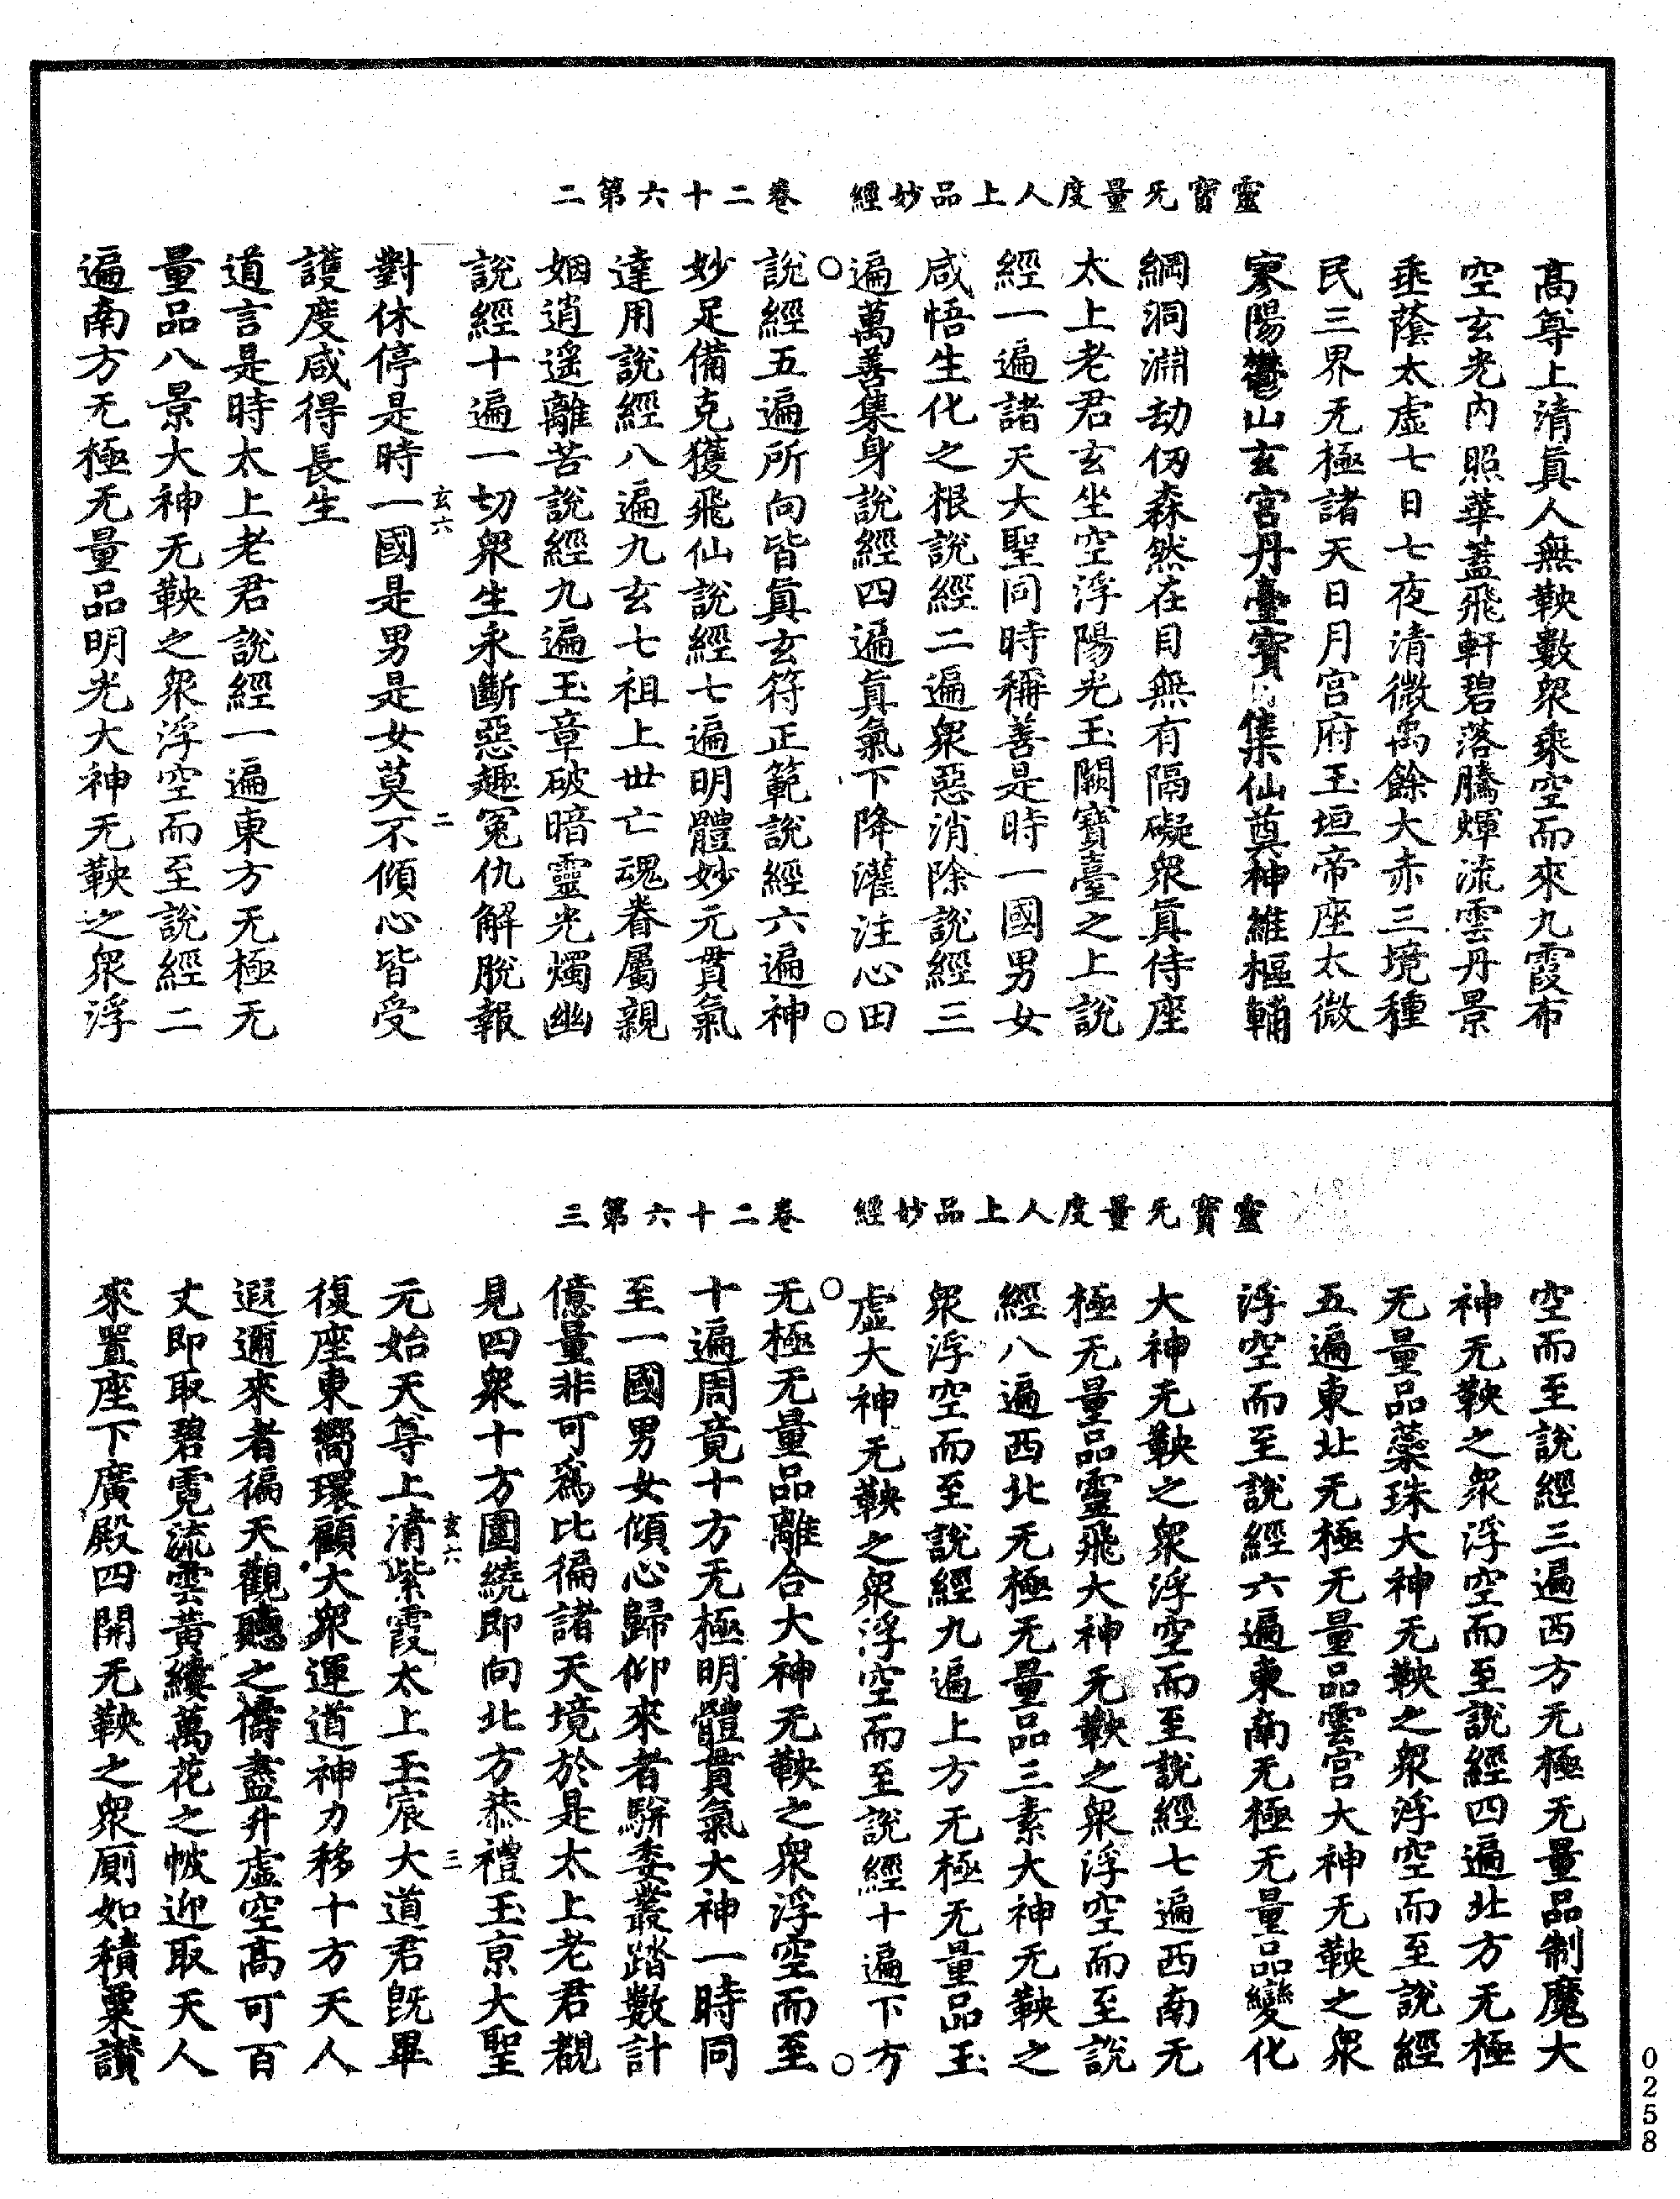 靈寶无量度人上品妙經　卷二十六第二
高尊上清眞人無鞅數衆乘空而來九霞布
空玄光内照華蓋飛軒碧落騰輝流雲丹景
垂蔭太虛七日七夜清微禹餘大赤三境種
民三界无極諸天日月宫府玉垣帝座太微
寥陽鬱山玄宫丹臺寶集仙奠神維樞輔
綱洞淵劫仞森然在目無有隔礙衆眞侍座
太上老君玄坐空浮陽光玉闕寶臺之上說
經一遍諸天大聖同時稱善是時一國男女
咸悟生化之根說經二遍衆惡消除說經三
遍萬善集身說經四遍眞氣下降灌注心田
說經五遍所向皆眞玄符正範說經六遍神
妙足備克獲飛仙說經七遍明體妙元貫氣
達用說經八遍九玄七祖上世亡魂眷屬親
姻逍遥離苦說經九遍玉章破暗靈光燭幽
說經十遍一切衆生永斷惡趣冤仇解脫報
玄六　二
對休停是時一國是男是女莫不傾心皆受
護度咸得長生
道言是時太上老君說經一遍東方无極无
量品八景大神无鞅之衆浮空而至說經二
遍南方无極无量品明光大神无鞅之衆浮
靈寶无量度人上品妙經　卷二十六第三
空而至說經三遍西方无極无量品制魔大
神无鞅之衆浮空而至說經四遍北方无極
无量品藥珠大神无鞅之衆浮空而至說經
五遍東北无極无量品雲宫大神无鞅之衆
浮空而至說經六遍東南无極无量品變化
大神无鞅之衆浮空而至說經七遍西南无
極无量品靈飛大神无鞅之衆浮空而至說
經八遍西北无極无量品三素大神无鞅之
衆浮空而至說經九遍上方无極无量品玉
虛大神无鞅之衆浮空而至說經十遍下方
无極无量品離合大神无鞅之衆浮空而至
十遍周竟十方无極明體貫氣大神一時同
至一國男女傾心歸仰來者駢委叢踏數計
億量非可爲比徧諸天境於是太上老君觀
見四衆十方圍繞即向北方恭禮玉京大聖
玄六　三
元始天尊上清紫霞太上玉宸大道君旣畢
復座東嚮環顧大衆運道神力移十方天人
遐邇來者徧天觀聽之儔盡升虛空高可百
丈即取碧霓流雲黄縷萬花之帔迎取天人
來置座下廣殿四開无鞅之衆廁如積粟讃
0258